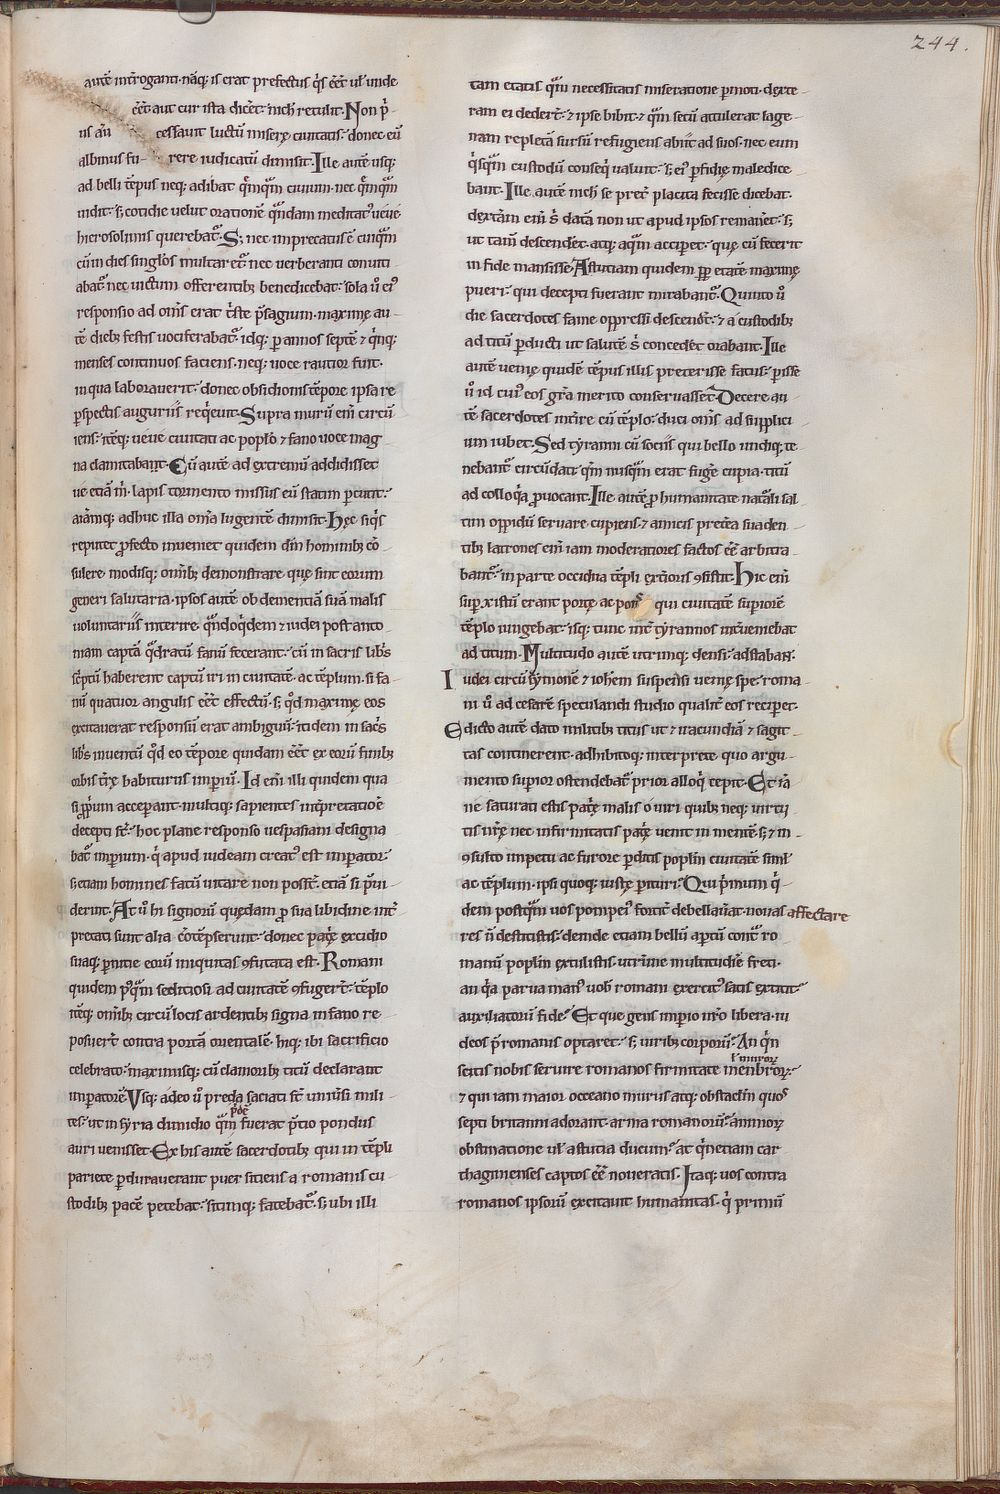 244.
autē int̄roganti· nāq; is erat prefectus q̇s eēt ul' unde
eēt aut cur ista dicēt· nich' retulit· Non p̄
us aū cessauit luctū miserę ciuitatis· donec eū
albinus fu- rere iudicatū dimisit· Ille autē usq;
ad belli tēpus neq; adibat q̄mq̄m ciuium· nec q̄mq̄m
uidit· s; cotidie uelut orationē q̄ndam meditat' ueue
hierosolimis querebat'· S; nec imprecatus ē cuiq̄m
cū in dies singlōs mulcaret'· nec uerberanti conuiti
abat'· nec uictum offerentib; benedicebat· sola ū ei'
responsio ad om̄s erat t̄ste p̄sagium· maxime au-
tē dieb; festis uociferabat'· idq; p annos septē & q̇nq;
menses continuos faciens· neq; uoce rautior fuit·
in qua laborauerit· donec obsidionis tēpore ipsa re
pspectis auguriis req̇euit· Supra murū em̄ circū
iens· itēq; ueue ciuitati ac poplo & fano uoce mag
na clamitabant· Cū autē ad extremū addidisset
ue etiā m̄· lapis tormento missus eū statim pemit·
aīamq; adhuc illa om̄a lugentē dimisit· Hęc siq̇s
reputet pfecto inueniet quidem dm̄ hominib; cō
sulere modisq; omīb; demonstrare que sint eorum
generi salutaria· ipsos autē ob dementiā suā malis
uoluntariis interire· q̄ndoq̇dem & iudei post anto
niam captā q̄dratū fanū fecerant· cū in sacris lib's
sc̄ptū haberent captū iri in ciuitatē· ac tēplum· si fa-
nū quatuor angulis eēt effectū· s; qd maxime eos
excitauerat responsū erat ambiguū· itidem in sac's
lib's inuentū qd eo tēpore quidam eēt ex eorū finib;
orbis t̄rę habiturus impiū· Id em̄ illi quidem qua
si p̄prium acceperant· multiq; sapientes int̄pretatiōe
decepti sc̄· hoc plane responso uespasiani designa
bat' impium· q̇ apud iudeam creat' est impator·
s; etiam homines factū uitare non poss̄t· etiā si p̄ui-
derint· At ū hi signorū quędam p sua libidine int̄-
pretati sunt alia cōtēpserunt· donec patrę excidio
suaq; pnitie eorū iniquitas 9futata est· Romani
quidem p'q̄m seditiosi ad ciuitatē 9fuger̄t· tēplo
itēq; omīb; circū locis ardentib; signa in fano re-
posuer̄t contra portā orientalē· hiq; ibi sacrificio
celebrato· maximisq; cū clamorib; titū declarant
impatorē· Vsq; adeo ū preda saciati st̄ uniūsi mili-
tes· ut in syria dimidio q̄m fuerat p̄tio pondus
auri uenisset· Ex his autē sacerdotib; qui in tēpli
pariete pdurauerant puer sitiens a romanis cu-
stodib; pacē petebat· sitimq; fatebat'· s; ubi illi
tam etatis q̄m necessitatis miseratione pmoti· dexte-
ram ei dedert̄· & ipse bibit· & q̄m secū attulerat lage-
nam repletā sursū refugiens abiit ad suos· nec eum
q̇sq̄m custodū conseq̇ ualuit· s; ei' pfidię maledice
bant· Ille autē nich' se preť placita fecisse dicebat·
dextām em̄ s' datā non ut apud ipsos remanet· s;
ut tam̄ descend&· atq; aq̄m accipet· quę cū fecerit
in fide mansisse· Astutiam quidem pp etatē maxime
pueri· qui decepti fuerant mirabant'· Quinto ū
die sacerdotes fame oppressi descend̄t· & a custodib;
ad titū pducti ut salutē s' conceder& orabant· Ille
autē uenię quidē tēpus illis preterisse fatus· pisse
ū id cui' eos gr̄a merito conseruasset· Decere au-
tē sacerdotes interire cū tēplo· duci om̄s ad supplici
um iubet· Sed tyranni cū sociis qui bello undiq; te
nebant' circūdati· q̄m nusq̄m erat fugę cupia· titū
ad colloq̇a puocant· Ille autē p humanitate naťali sal
tim oppidū seruare cupiens· & amicis pret̄ea suaden
tib; latrones em̄ iam moderatiores factos eē arbitra
bant'· in parte occidua tēpli ext̄ioris 9sistit· Hic em̄
sup xistū erant portę ac pons qui ciuitatē supiorē
tēplo iungebat· isq; tunc int̄ tyrannos int̄ueniebat
ad titum· Multitudo autē utrimq; densi adstabant·
Iudei circū symonē & iohem suspensi uenię spe· roma
ni ū ad cesarē speculandi studio qualit̄ eos recipet·
Edicto autē dato militib; titus ut & iracundiā & sagit
tas continerent· adhibitoq; interprete quo argu-
mento supior ostendebat' prior alloq̇ cepit· Et sā
ne saturati estis patrę malis o uiri quib; neq; uirtu
tis nr̄ę nec infirmitatis patrę uenit in mentē· s; & in-
9sulto impetu ac furore pditis poplm ciuitatē siml'
ac tēplum· ipsi quoq; iustę pituri· Qui p̄mum q̇
dem postq̄m uos pompei' fortit̄ debellauat· nouas affectare
res n̄ destitistis· deinde etiam bellū aptū cont̄ ro
manū poplm extulistis· utrūne multitudiē freti·
an q̇a parua man' uob' romani exercit' satis extitit·
auxiliatorū fide· Et que gens impio nr̄o libera· iu
deos p̄ romanis optaret· s; uirib; corporū· An q̇n
scitis nobis seruire romanos firmitate menbror;·
& qui iam maior occeano murus atq; obstaclm quo'
septi britanni adorant· arma romanorū· animor;
obstinatione ul' astutia ducum· at q̇n etiam car
thaginenses captos eē noueratis· Itaq; uos contra
romanos ipsorū excitauit humanitas· q̇ primū